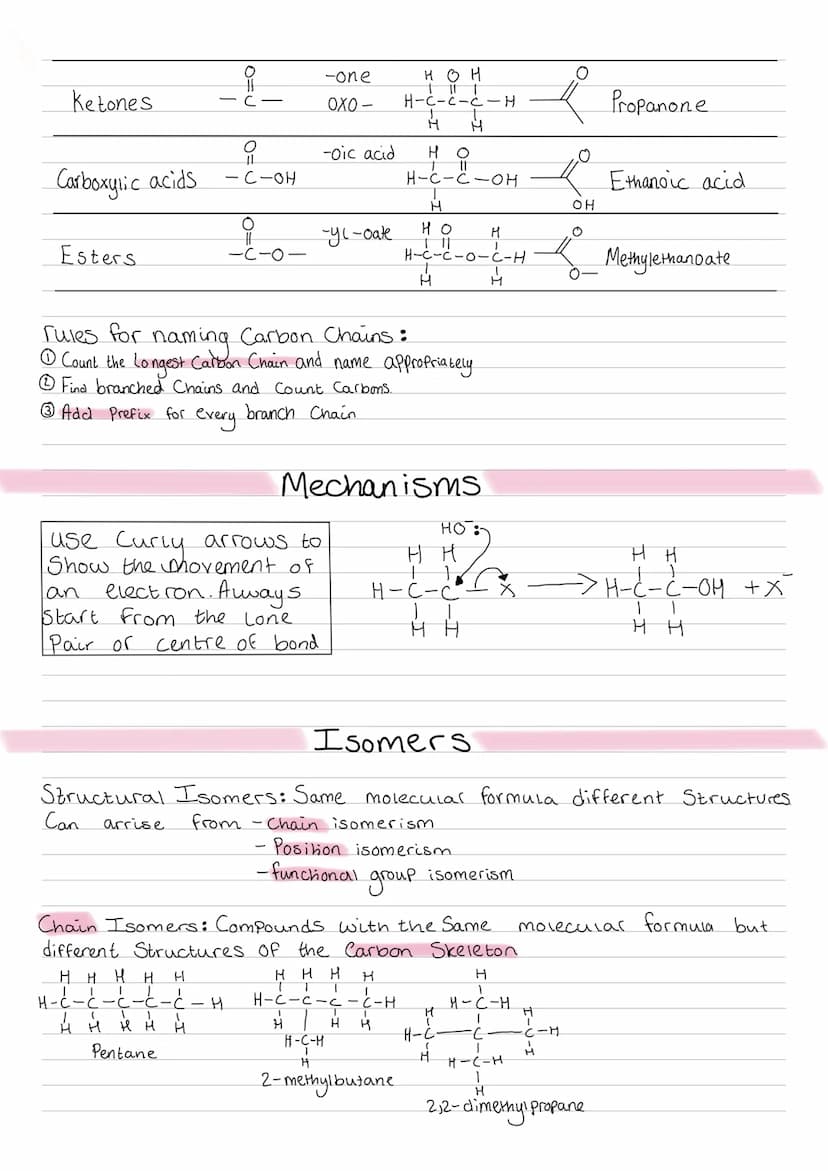 Ketones
O
-C-
-one
oxo-
H O H
H-C-C-C-H
H H
O
Propanone
Carboxylic acids
O
-C-OH
-oic acid
H O
H-C-C-OH
H
O
OH
Ethanoic acid
Esters
O
-C-O-
-yl-oate
H O H
H-C-C-O-C-H
H H
O
O
Methylethanoate
rules for naming Carbon Chains:
① Count the longest Carbon Chain and name appropriately
② Find branched Chains and Count Carbons.
③ Add Prefix for every branch Chain
Mechanisms
use Curly arrows to
Show the movement of
an electron. Always
Start from the Lone
Pair or centre of bond
HO⁻:
H H
H-C-C-X
H H
H H
H-C-C-OH + X⁻
H H
Isomers
Structural Isomers: Same molecular formula different Structures
Can arrise from - Chain isomerism
- Position isomerism
- functional group isomerism
Chain Isomers: Compounds with the Same molecular formula but
different Structures of the Carbon Skeleton
H H H H H
H-C-C-C-C-C-H
H H H H H
Pentane
H H H H
H-C-C-C-C-H
H H H
H-C-H
H
2-methylbutane
H
H-C-H
H H
H-C-C-C-H
H H
H-C-H
H
2,2-dimethylpropane